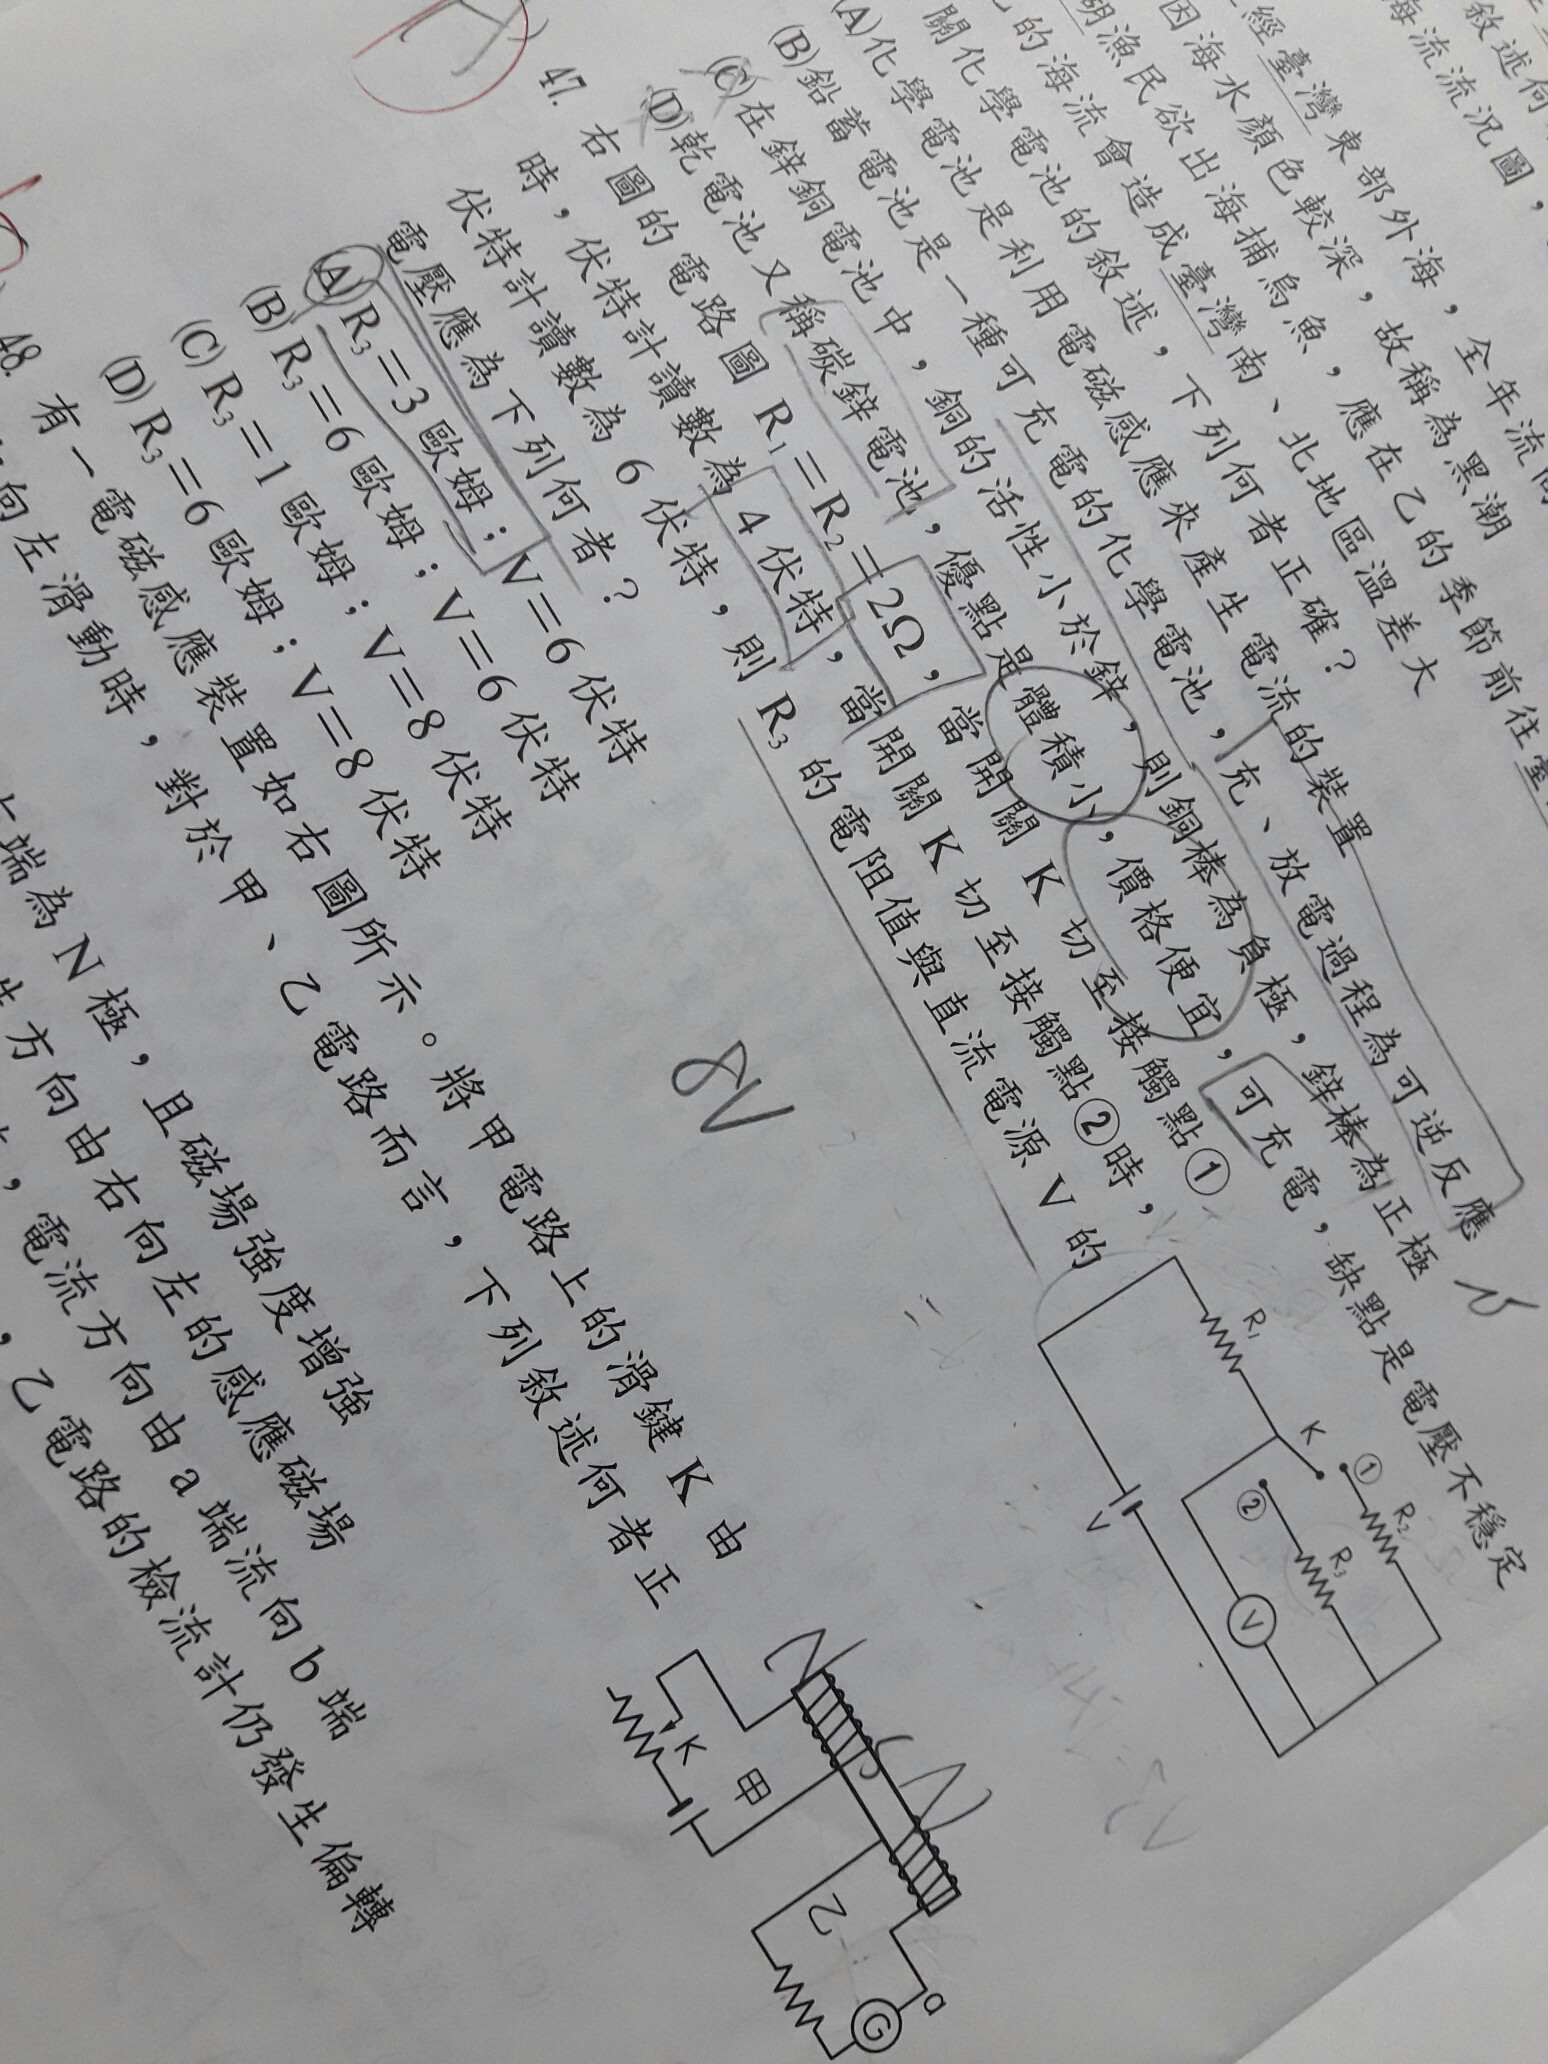 敘述何
海流流況圖，
經臺灣東部外海，全年流向
因海水顏色較深，故稱為黑潮
湖漁民欲出海捕烏魚，應在乙的季節前往臺
的海流會造成臺灣南、北地區溫差大
關化學電池的敘述，下列何者正確？
(A)化學電池是利用電磁感應來產生電流的裝置
(B)鉛蓄電池是一種可充電的化學電池，充、放電過程為可逆反應
(C)在鋅銅電池中，銅的活性小於鋅，則銅棒為負極，鋅棒為正極
(D)乾電池又稱碳鋅電池，優點是體積小，價格便宜，可充電，缺點是電壓不穩定
47. 右圖的電路圖 R₁＝R₂＝2Ω，當開關 K 切至接觸點①
時，伏特計讀數為 4 伏特，當開關 K 切至接觸點②時，
伏特計讀數為 6 伏特，則 R₃ 的電阻值與直流電源 V 的
電壓應為下列何者？
(A) R₃＝3 歐姆；V＝6 伏特
(B) R₃＝6 歐姆；V＝6 伏特
(C) R₃＝1 歐姆；V＝8 伏特
(D) R₃＝6 歐姆；V＝8 伏特
8V
R₁
K
①
R₂
②
R₃
V
V
48. 有一電磁感應裝置如右圖所示。將甲電路上的滑鍵 K 由
向左滑動時，對於甲、乙電路而言，下列敘述何者正
上端為 N 極，且磁場強度增強
生方向由右向左的感應磁場
，電流方向由 a 端流向 b 端
，乙電路的檢流計仍發生偏轉
N
S
N
K
甲
乙
a
G